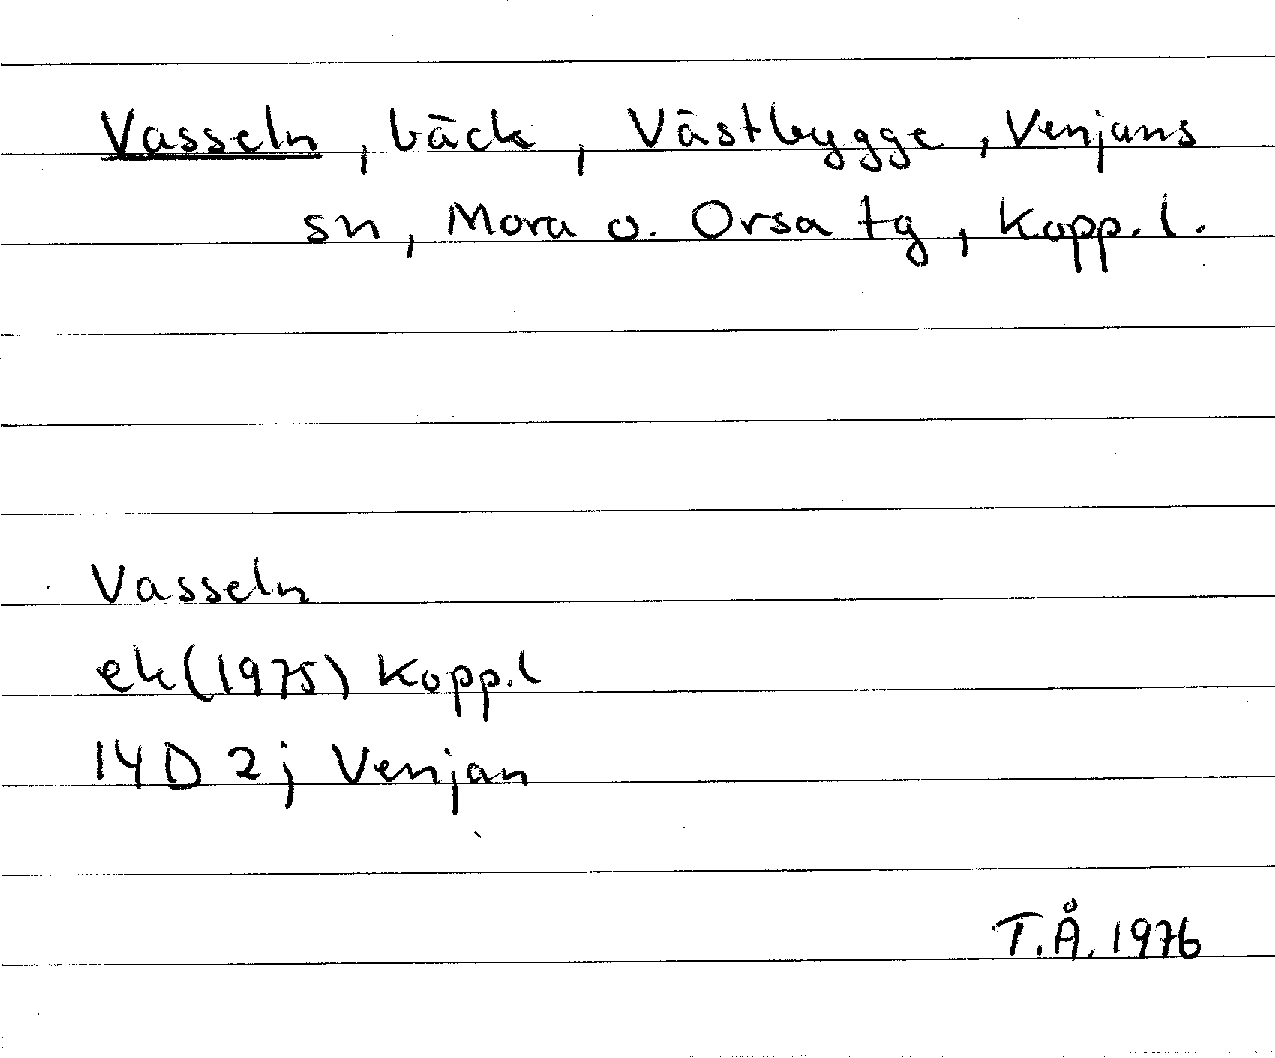 Vasseln, bäck, Västbygge, Venjans
sn, Mora o. Orsa tg, Kopp. l.
Vasseln
ek (1975) Kopp. l
14D 2j Venjan
T.Å. 1976